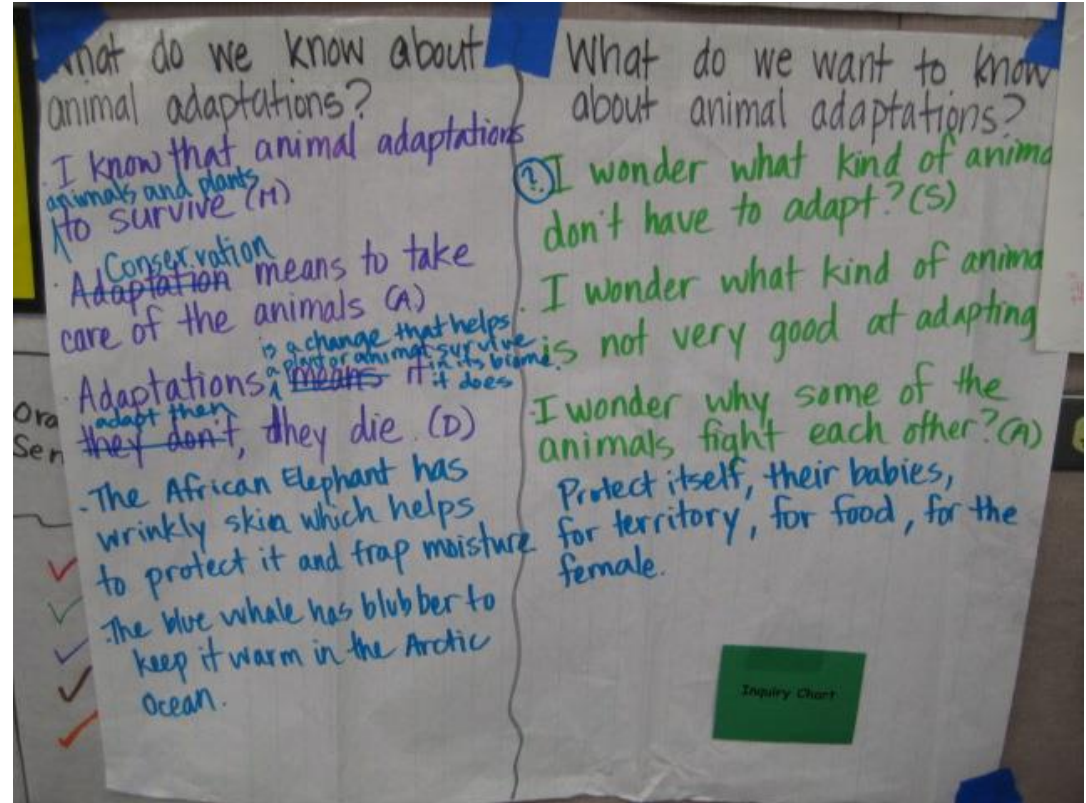 What do we know about
animal adaptations?
· I know that animal adaptations
animals and plants
to survive (M)
Conservation
· Adaptation means to take
care of the animals (A)
is a change that helps
a plant or animal survive
in its biome.
· Adaptations means it it does
adapt then
they don't, they die. (D)
- The African Elephant has
wrinkly skin which helps
to protect it and trap moisture
- The blue whale has blubber to
keep it warm in the Arctic
Ocean.
What do we want to know
about animal adaptations?
? I wonder what kind of anima
don't have to adapt? (S)
· I wonder what kind of anima
is not very good at adapting
· I wonder why some of the
animals fight each other? (A)
Protect itself, their babies,
for territory, for food, for the
female.
Inquiry Chart
Ora
Sen